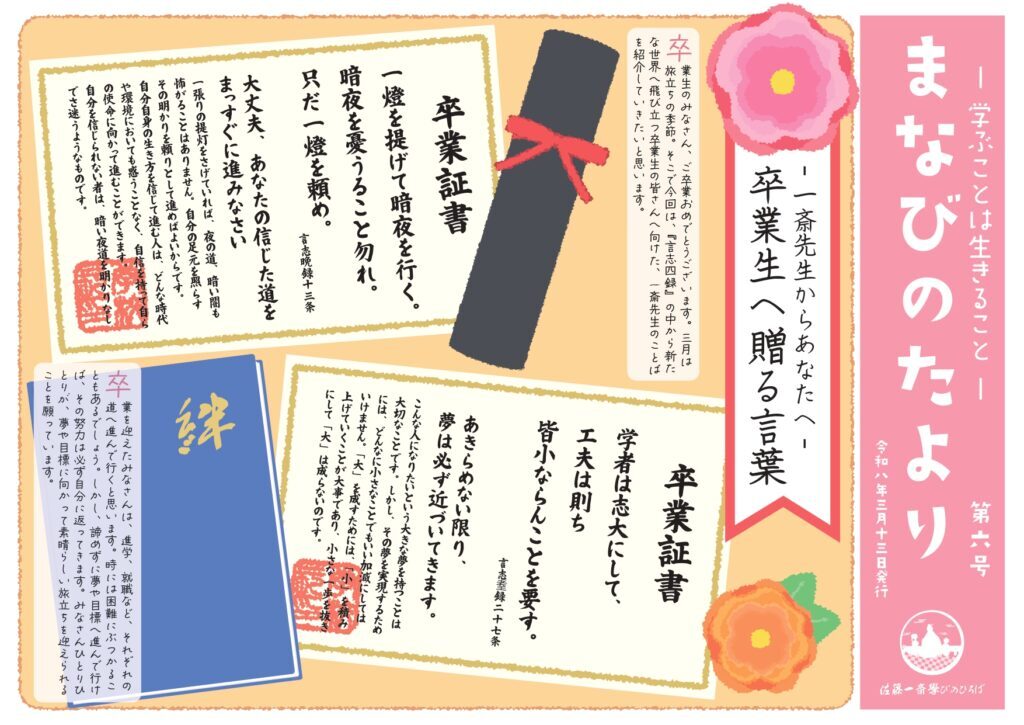 －学ぶことは生きること－
まなびのたより
第六号
令和八年三月十三日発行
佐藤一斎學びのひろば
－一斎先生からあなたへ－
卒業生へ贈る言葉
卒業生のみなさん、ご卒業おめでとうございます。三月は
旅立ちの季節。そこで今回は、『言志四録』の中から新た
な世界へ飛び立つ卒業生の皆さんへ向けた、一斎先生のことば
を紹介していきたいと思います。
卒業証書
一燈を提げて暗夜を行く。
暗夜を憂うること勿れ。
只だ一燈を頼め。
言志晩録十三条
大丈夫、あなたの信じた道を
まっすぐに進みなさい
一張りの提灯をさげていれば、夜の道、暗い闇も
怖がることはありません。自分の足元を照らす
その明かりを頼りとして進めばよいからです。
自分自身の生き方を信じて進む人は、どんな時代
や環境においても惑うことなく、自信を持って自ら
の使命に向かって進むことができます。
自分を信じられない者は、暗い夜道を明かりなし
でさ迷うようなものです。
卒業証書
学者は志大にして、
工夫は則ち
皆小ならんことを要す。
言志耋録二十七条
あきらめない限り、
夢は必ず近づいてきます。
こんな人になりたいという大きな夢を持つことは
大切なことです。しかし、その夢を実現するため
には、どんなに小さなことでもいい加減にしては
いけません。「大」を成すためには、「小」を積み
上げていくことが大事であり、小さな一歩を抜き
にして「大」は成らないのです。
絆
卒業を迎えたみなさんは、進学、就職など、それぞれの
道へ進んで行くと思います。時には困難にぶつかるこ
ともあるでしょう。しかし、諦めずに夢や目標へ進んで行け
ば、その努力は必ず自分に返ってきます。みなさんひとりひ
とりが、夢や目標に向かって素晴らしい旅立ちを迎えられる
ことを願っています。